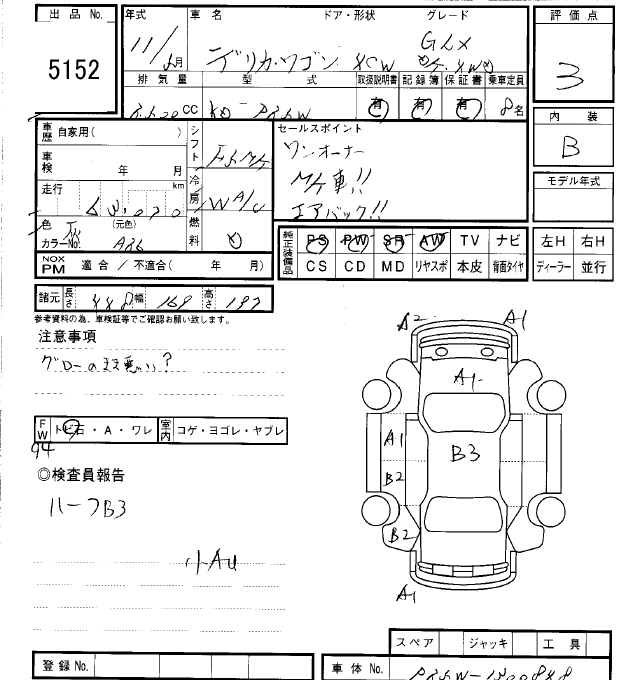 出品 No. 5152
年式 11/ 月
車名 デリカ・ワゴン
ドア・形状
グレード GLX
評価点 3
排気量 CC
型式 KD-
取扱説明書 有
記録簿 有
保証書 有
乗車定員 8名
内装 B
車歴 自家用( )
シフト
セールスポイント
ワンオーナー
車!!
エアバック!!
車検 年 月
走行 km
冷房 W A/C
モデル年式
色 灰 (元色)
カラーNo.
燃料
純正装備品 PS PW SR AW TV ナビ
CS CD MD リヤスポ 本皮 背面タイヤ
左H 右H
ディーラー 並行
NOX PM 適合 / 不適合( 年 月)
諸元 長さ 448 幅 169 高さ 197
参考資料の為、車検証等でご確認お願い致します。
注意事項
FW トビ石・A・ワレ
室内 コゲ・ヨゴレ・ヤブレ
94
◎検査員報告
ハーフB3
小AU
A2 A1
A1
A1
B3
B2
B2
A1
スペア ジャッキ 工具
登録 No.
車体 No.